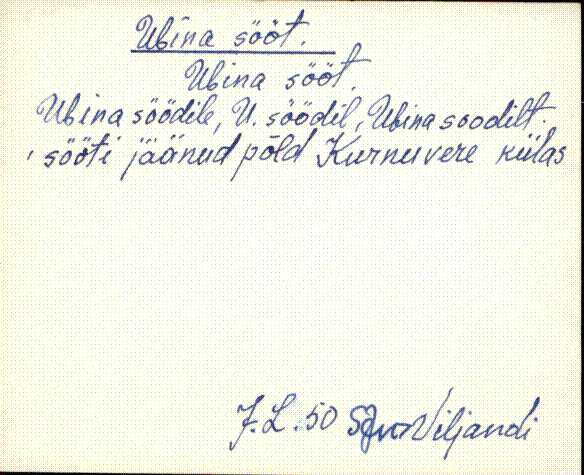 Ubina sööt.
Ubina sööt.
Ubina söödile, U. söödil, Ubina soodilt.
, sööti jäänud põld Kurnuvere külas
J. L. 50 SJn Viljandi